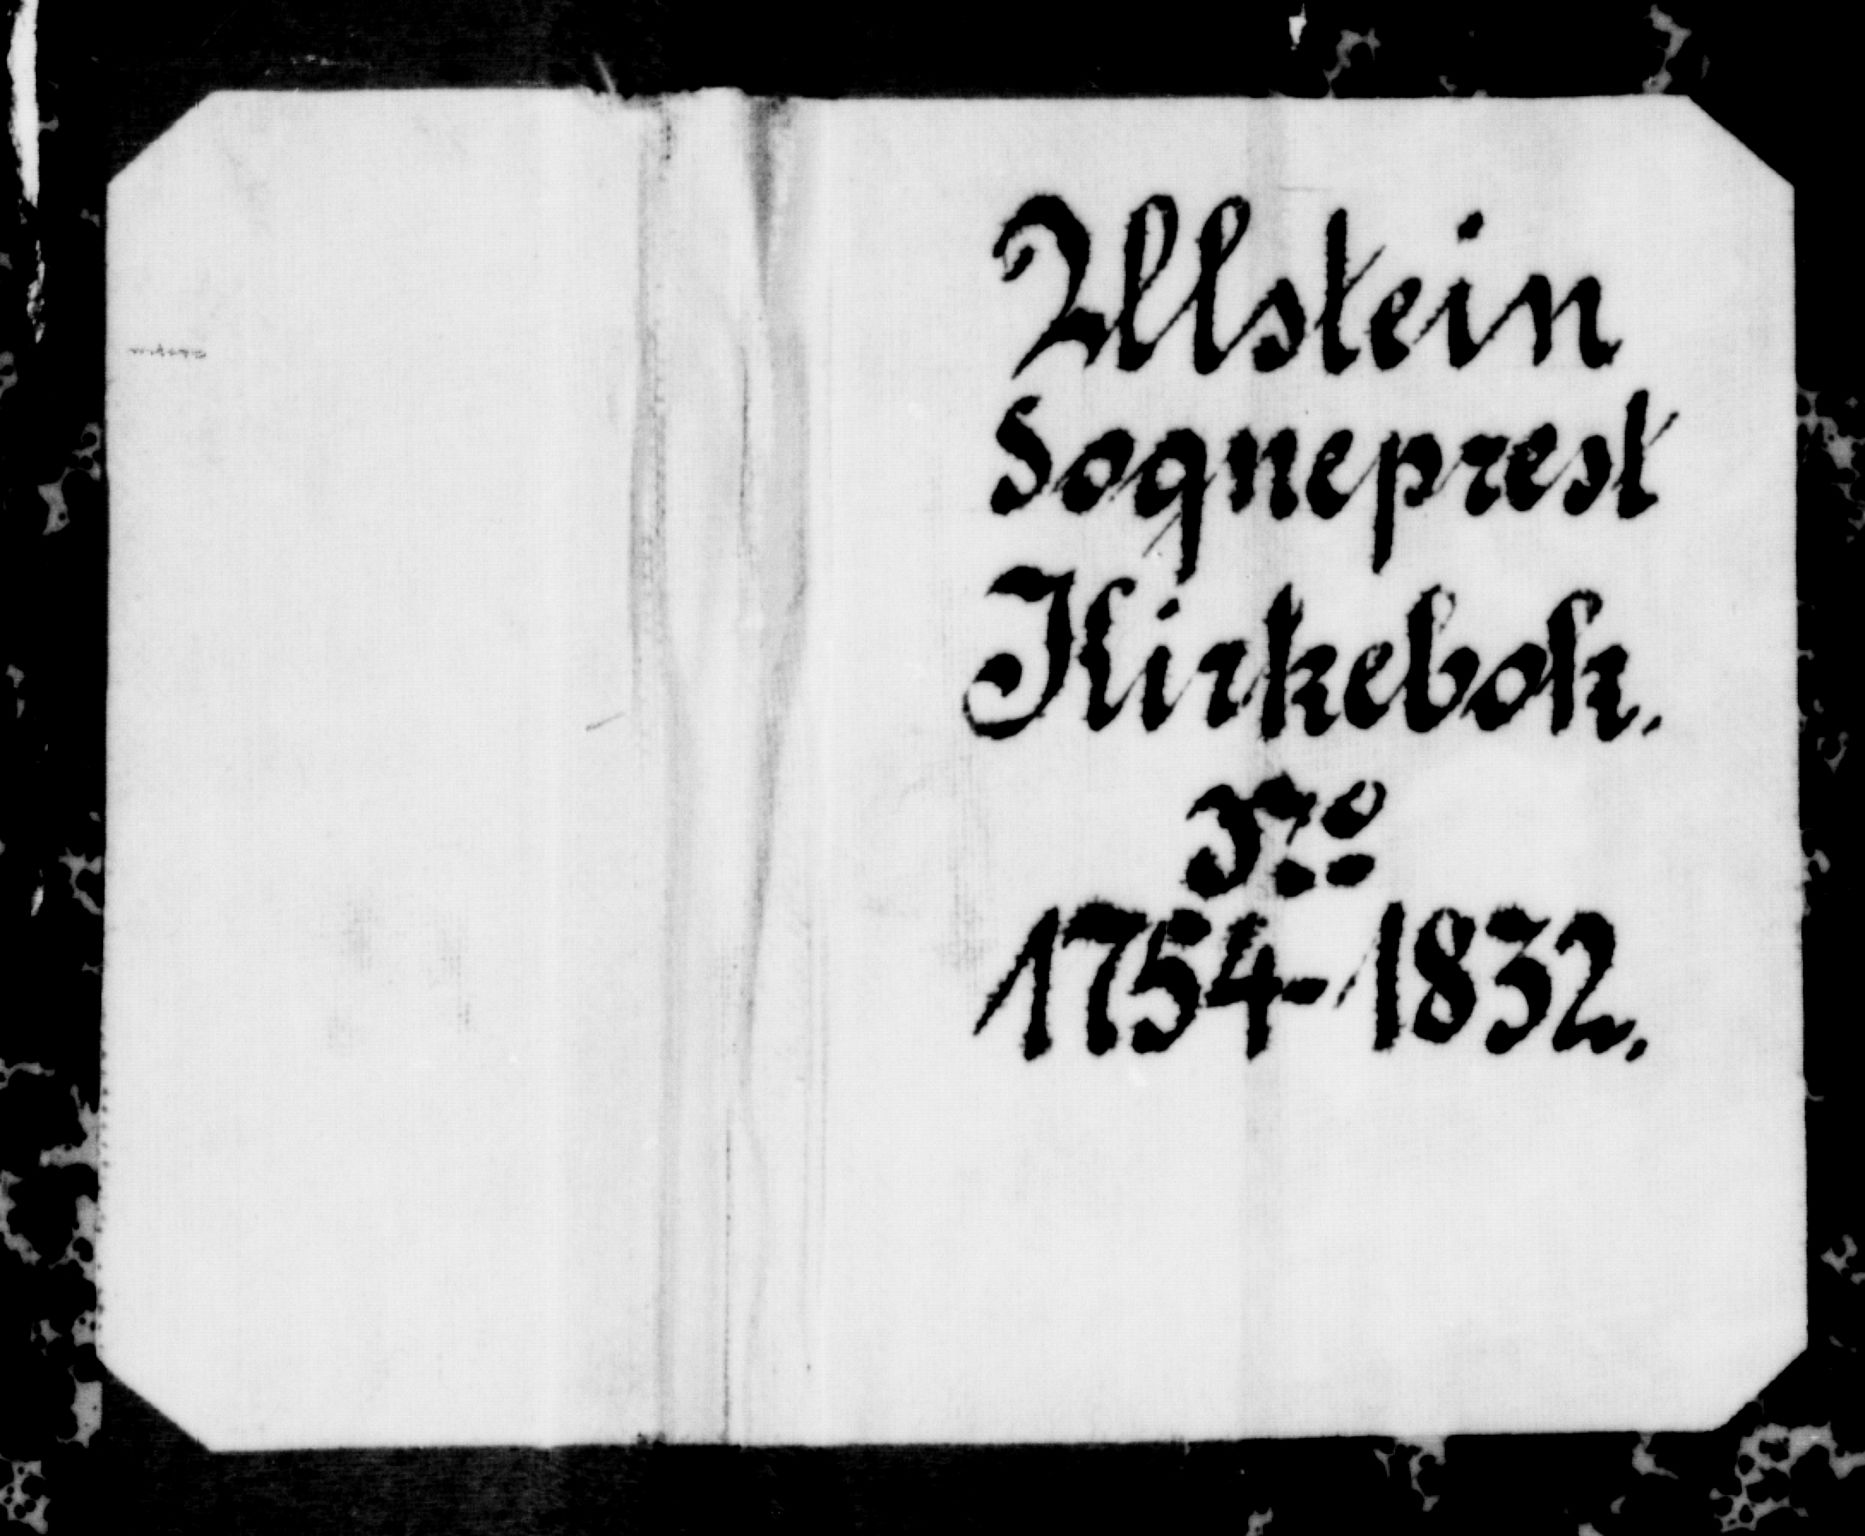 Ulstein
Sogneprest
Kirkebok.
No
1754-1832.